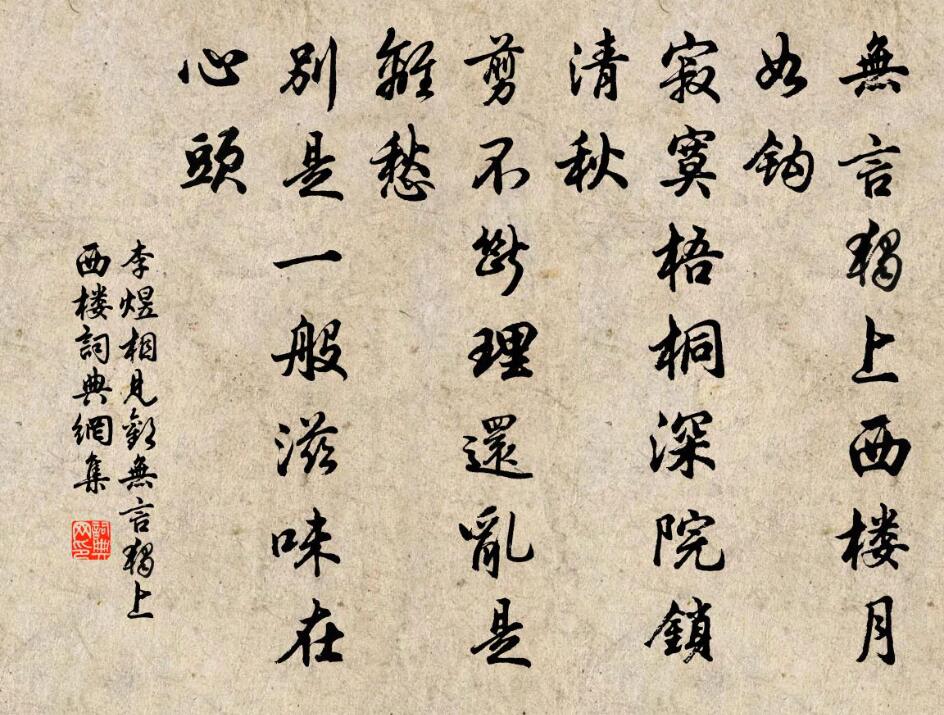 無言獨上西楼月
如鈎
寂寞梧桐深院鎖
清秋
剪不斷理還亂是
離愁
別是一般滋味在
心頭
李煜相見歡無言獨上
西楼詞典網集
詞典网印